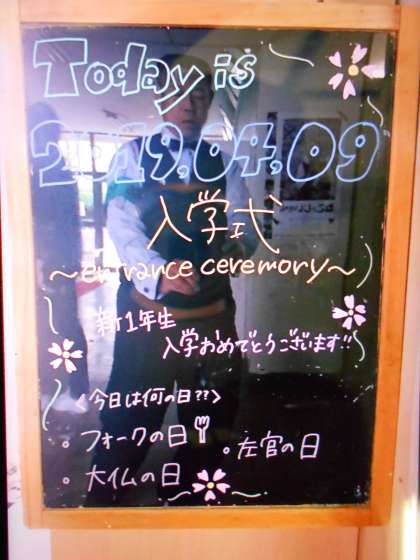 Today is
2019.04.09
入学式
～entrance ceremory～
新1年生
入学おめでとうございます!!
<今日は何の日??>
。フォークの日
。左官の日
。大仏の日